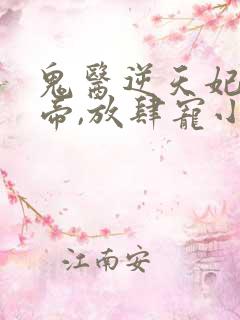 鬼醫逆天妃
帝,放肆寵小
江南安